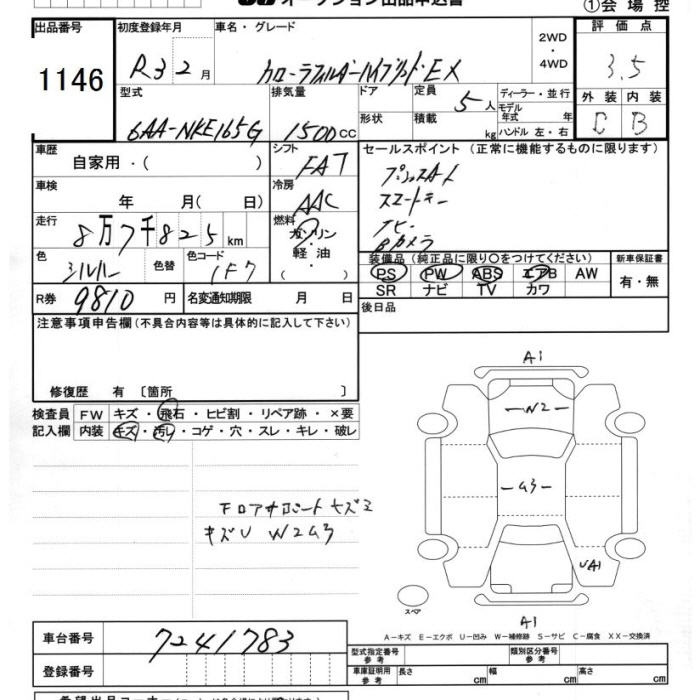 オークション出品申込書
①会場控
出品番号 初度登録年月 車名・グレード 評価点
1146
R3 2月 カローラフィルダーハイブリッド・EX
2WD
・
4WD
3.5
型式 排気量 ドア 定員 ディーラー・並行 外装 内装
6AA-NKE165G 1500cc 5人 モデル年式 年式 C B
形状 積載 kg ハンドル 左・右
車歴 シフト セールスポイント（正常に機能するものに限ります）
自家用・（ ） FA7
スマートキー
ナビ
Bカメラ
車検 冷房
年 月（ 日） AAC
走行 燃料
8万7千825km ガソリン
・
軽油
（ ）
色 色替 色コード 装備品（純正品に限り〇をつけてください） 新車保証書
シルバー 1F7
PS PW ABS エアB AW 有・無
SR ナビ TV カワ
R券 9810円 名変通知期限 月 日 後日品
注意事項申告欄（不具合内容等は具体的に記入して下さい）
修復歴 有〔箇所 〕
検査員 FW キズ・飛石・ヒビ割・リペア跡・×要
記入欄 内装 キズ・汚レ・コゲ・穴・スレ・キレ・破レ
A1
W2
G3
UA1
スペア
A1
フロアサポート キズ
キズU W2 G3
A－キズ E－エクボ U－凹み W－補修跡 S－サビ C－腐食 XX－交換済
車台番号 7241783
登録番号
型式指定番号 参考 類別区分番号 参考
車庫証明用 参考 長さ cm 幅 cm 高さ cm